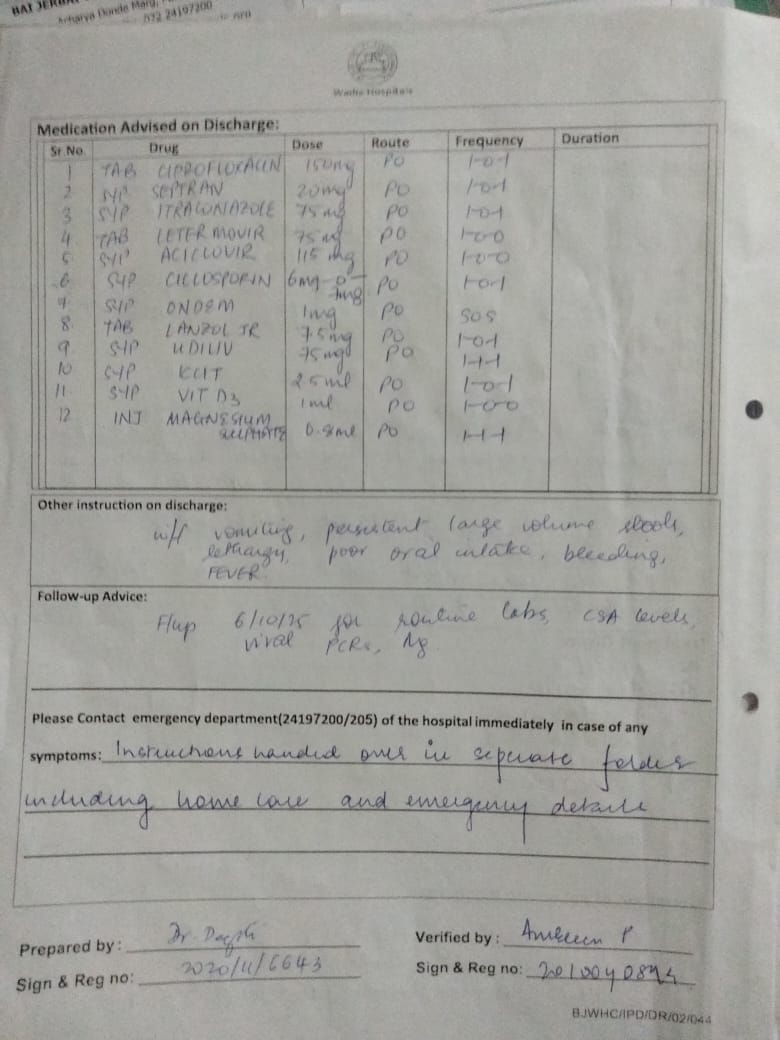 BAI JERBAI
Acharya Donde Marg,
022 24197200
Wadia Hospitals
Medication Advised on Discharge:
Sr.No. Drug Dose Route Frequency Duration
1 TAB CIPROFLOXACIN 150mg PO 1-0-1
2 SYP SEPTRAN 20mg PO 1-0-1
3 SYP ITRACONAZOLE 75mg PO 1-0-1
4. TAB LETERMOVIR 75mg PO 1-0-0
5 SYP ACICLOVIR 115mg PO 1-0-0
6 SYP CICLOSPORIN 6mg-0- PO 1-0-1
7 SYP ONDEM 1mg PO SOS
8 TAB LANZOL JR 7.5mg PO 1-0-1
9 SYP UDILIV 75mg PO 1-1-1
10 SYP KCIT 2.5ml PO 1-0-1
11. SYP VIT D3 1ml PO 1-0-0
12 INJ MAGNESIUM
SULPHATE 0.8ml PO 1-1-1
Other instruction on discharge:
w/f vomiting, persistent large volume stools,
lethargy, poor oral intake, bleeding,
FEVER.
Follow-up Advice:
F/up 6/10/25 for routine labs, CSA levels,
viral PCRs, Mg.
Please Contact emergency department(24197200/205) of the hospital immediately in case of any
symptoms: Instructions handed over in seperate folder
including home care and emergency details
Prepared by: Dr. Verified by:
Sign & Reg no: 2020/11/6643 Sign & Reg no:
BJWHC/IPD/DR/02/044